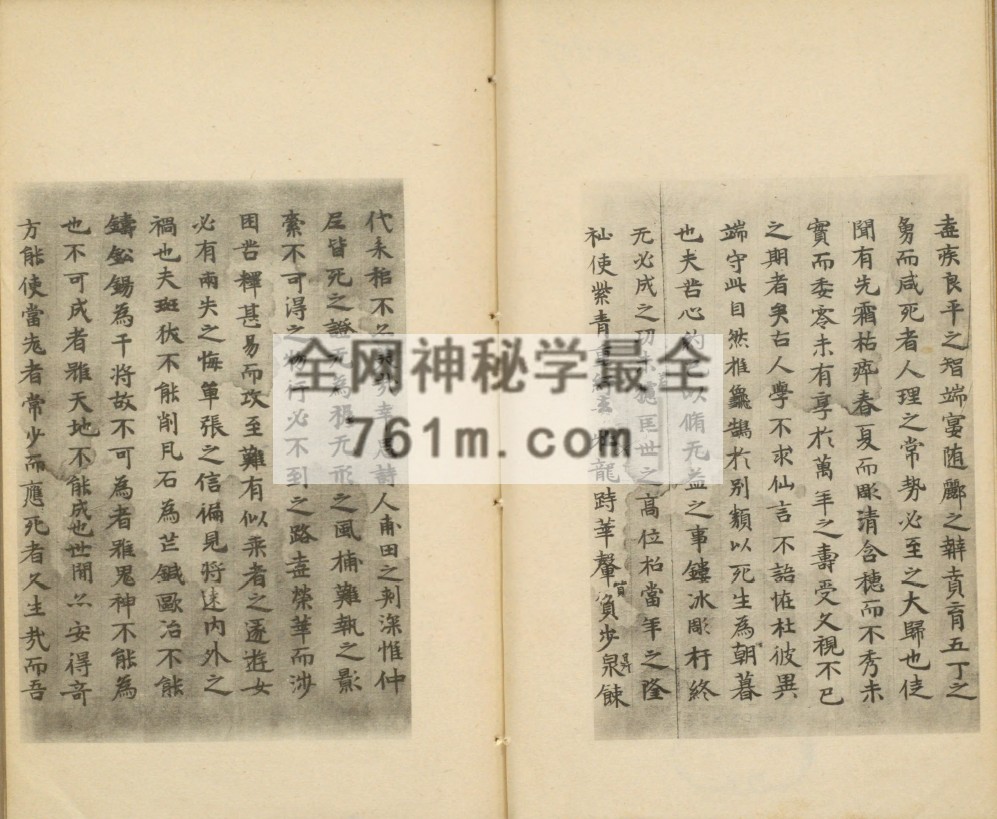 壷疾良平之智端宴随酈之辯賁育五丁之
勇而咸死者人理之常勢必至之大歸也徒
聞有先霜枯瘁春夏而彫清含穗而不秀未
實而委零未有享於萬年之壽受久視不已
之期者矣古人學不求仙言不語恠杜彼異
端守此自然推龜鶴於別類以死生為朝暮
也夫苦心約 以脩无益之事鏤冰彫朽終
无必成之功未 匡世之高位招當年之隆
祉使紫青 玄 龍 跱華轂 負步 泉餗
代耒耜不 哉 幸 思詩人甫田之刺深惟仲
尼皆死之證无為握无形之風捕難執之影
索不可得之物行必不到之路壷榮華而涉
困苦釋甚易而攻至難有似桒者之逐遊女
必有兩失之悔單張之信褊見將速內外之
禍也夫班狄不能削凡石為芒鍼歐冶不能
鑄鈆錫為干將故不可為者雖鬼神不能為
也不可成者雖天地不能成也世閒 安得奇
方能使當老者常少而應死者久生哉而吾
全网神秘学最全
761m.com